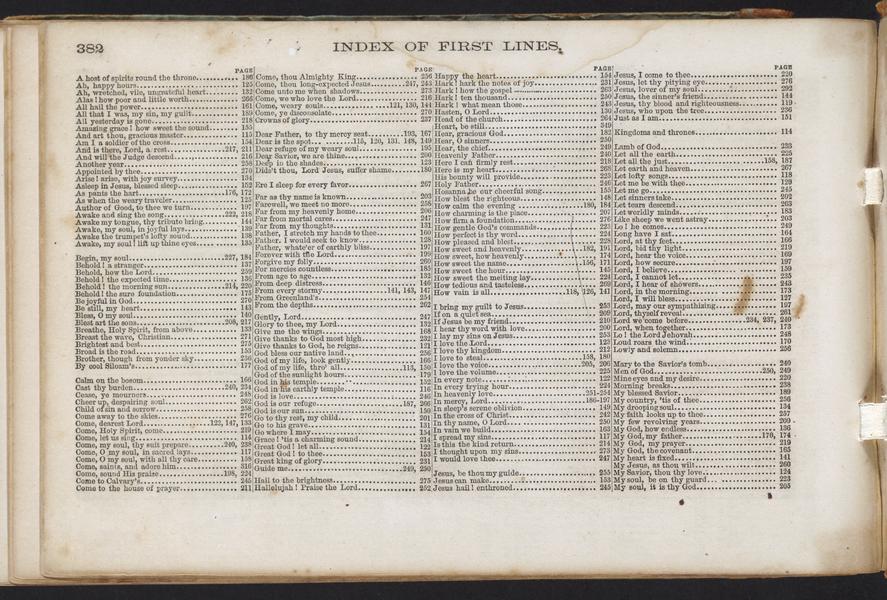 382
INDEX OF FIRST LINES.
PAGE
A host of spirits round the throne 186
Ah, happy hours 125
Ah, wretched, vile, ungrateful heart 132
Alas! how poor and little worth 266
All hail the power 161
All that I was, my sin, my guilt 189
All yesterday is gone 218
Amazing grace! how sweet the sound 155
And art thou, gracious master 115
Am I a soldier of the cross 154
And is there, Lord, a rest 217, 211
And will the Judge descend 216
Another year 258
Appointed by thee 270
Arise! arise, with joy survey 134
Asleep in Jesus, blessed sleep 152
As pants the hart 176, 172
As when the weary traveler 125
Author of Good, to thee we turn 107
Awake and sing the song 222, 218
Awake my tongue, thy tribute bring 144
Awake, my soul, in joyful lays 139
Awake the trumpet's lofty sound 138
Awake, my soul! lift up thine eyes 135
Begin, my soul 227, 184
Behold! a stranger 137
Behold, how the Lord 259
Behold! the expected time 136
Behold! the morning sun 214, 220
Behold! the sure foundation 175
Be joyful in God 270
Be still, my heart 143
Bless, O my soul 140
Blest art the sons 208, 217
Breathe, Holy Spirit, from above 133
Breast the wave, Christian 271
Brightest and best 275
Broad is the road 153
Brother, though from yonder sky 236
By cool Siloam's 177
Calm on the bosom 166
Cast thy burden 240, 234
Cease, ye mourners 248
Cheer up, despairing soul 262
Child of sin and sorrow 258
Come away to the skies 276
Come, dearest Lord 122, 147, 133
Come, Holy Spirit, come 249
Come, let us sing 114
Come, my soul, thy suit prepare 240, 238
Come, O my soul, in sacred lays 117
Come, O my soul, with all thy care 108
Come, saints, and adore him 316
Come, sound His praise 198, 224
Come to Calvary's 245
Come to the house of prayer 211
PAGE
Come, thou Almighty King 256
Come, thou long-expected Jesus 247, 243
Come unto me when shadows 273
Come, we who love the Lord 216
Come, weary souls 121, 130, 144
Come, ye disconsolate 270
Crowns of glory 237
Dear Father, to thy mercy seat 193, 167
Dear is the spot 115, 120, 131, 148, 149
Dear refuge of my weary soul 195
Dear Savior, we are thine 200
Deep in the shades 123
Didst thou, Lord Jesus, suffer shame 180
Ere I sleep for every favor 267
Far as thy name is known 203
Farewell, we meet no more 258
Far from my heavenly home 206
Far from mortal cares 247
Far from my thoughts 131
Father, I stretch my hands to thee 160
Father, I would seek to know 128
Father, whate'er of earthly bliss 197
Forever with the Lord 199
Forgive my folly 260
For mercies countless 185
From age to age 133
From deep distress 146
From every stormy 141, 143, 147
From Greenland's 254
From the depths 262
Gently, Lord 247
Glory to thee, my Lord 132
Give me the wings 168
Give thanks to God most high 232
Give thanks to God, he reigns 121
God bless our native land 256
God of my life, look gently 166
God of my life, thro' all 113, 130
God of the sunlight hours 179
God in his temple 152
God in his earthly temple 116
God is love 241
God is our refuge 187, 206
God is our sun 156
Go to thy rest, my child 201
Go to his grave 131
Go where I may 249
Grace! 'tis a charming sound 214
Great God! let all 122
Great God! to thee 153
Great king of glory 231
Guide me 249, 250
Hail to the brightness 275
Hallelujah! Praise the Lord 252
PAGE
Happy the heart 154
Hark! hark the notes of joy 231
Hark! how the gospel 263
Hark! ten thousand 250
Hark! what mean those 243
Hasten, O Lord 129
Head of the church 264
Heart, be still 249
Hear, gracious God 182
Hear, O sinners 250
Hear, the chief
Heavenly Father
Here I can firmly rest
Here is my heart
His bounty will provide
Holy Father
Hosanna be our cheerful song
How blest the righteous
How calm the evening 180, 184
How charming is the place
How firm a foundation
How gentle God's commands
How perfect is thy word 224
How pleased and blest 228
How sweet and heavenly 182, 191
How sweet, how heavenly 174
How sweet the name 156, 171
How sweet the hour 145
How sweet the melting lay 224
How tedious and tasteless 269
How vain is all 118, 126, 141
I bring my guilt to Jesus 253
If on a quiet sea 209
If Jesus be my friend 210
I hear thy word with love 200
I lay my sins on Jesus 253
I love the Lord 123
I love thy kingdom 212
I love to steal 158, 180
I love the voice 205, 206
I love the volume 225
In every note 122
In every trying hour 224
In heavenly love 251-254
In mercy, Lord 186-191
In sleep's serene oblivion 149
In the cross of Christ 242
In thy name, O Lord 250
In vain we build 163
I spread my sins 117
Is this the kind return 214
I thought upon my sins 273
I would love thee 247
Jesus, be thou my guide 255
Jesus can make 153
Jesus hail! enthroned 245
PAGE
Jesus, I come to thee 220
Jesus, let thy pitying eye 276
Jesus, lover of my soul 292
Jesus, the sinner's friend 144
Jesus, thy blood and righteousness 119
Jesus, who upon the tree 236
Just as I am 151
Kingdoms and thrones 114
Lamb of God 233
Let all the earth 225
Let all the just 158, 187
Let earth and heaven 207
Let lofty songs 118
Let me be with thee 129
Let me go 245
Let sinners take 202
Let tears descend 263
Let worldly minds 183
Like sheep we went astray 203
Lo! he comes 249
Long have I sat 164
Lord, at thy feet 166
Lord, bid thy light 219
Lord, hear the voice 169
Lord, how secure 197
Lord, I believe 159
Lord, I cannot let 235
Lord, I hear of showers 243
Lord, in the morning 173
Lord, I will bless 127
Lord, may our sympathizing 197
Lord, thyself reveal 261
Lord we come before 234, 237, 240
Lord, when together 173
Lo! the Lord Jehovah 248
Loud roars the wind 170
Lowly and solemn 256
Mary to the Savior's tomb 240
Men of God 250, 249
Mine eyes and my desire 220
Morning breaks 238
My blessed Savior 189
My country, 'tis of thee 256
My drooping soul 134
My faith looks up to thee 257
My few revolving years 209
My God, how endless 136
My God, my father 170, 174
My God, my prayer 219
My God, the covenant 165
My heart is fixed 141
My Jesus, as thou wilt 260
My Savior, thou thy love 124
My soul, be on thy guard 223
My soul, it is thy God 205